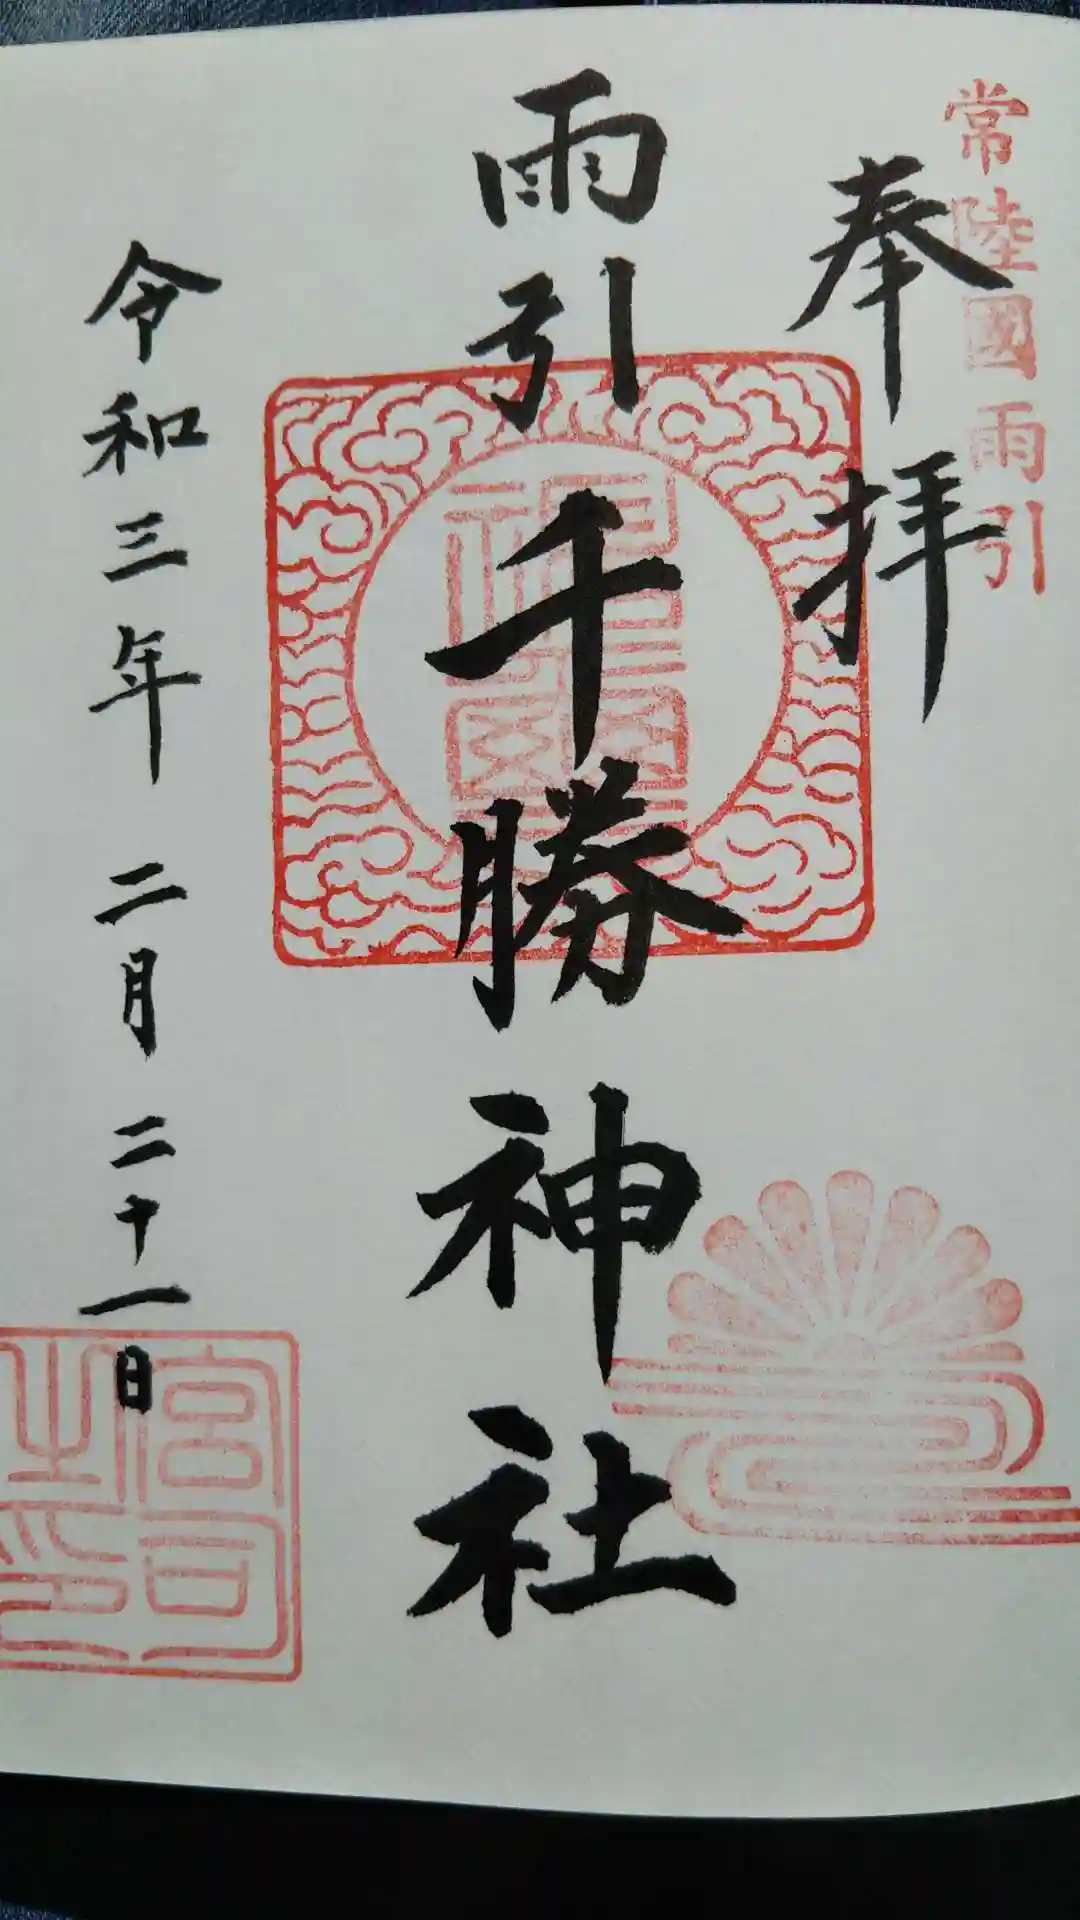 常陸國雨引
奉拝
雨引千勝神社
令和三年二月二十一日
宮司之印